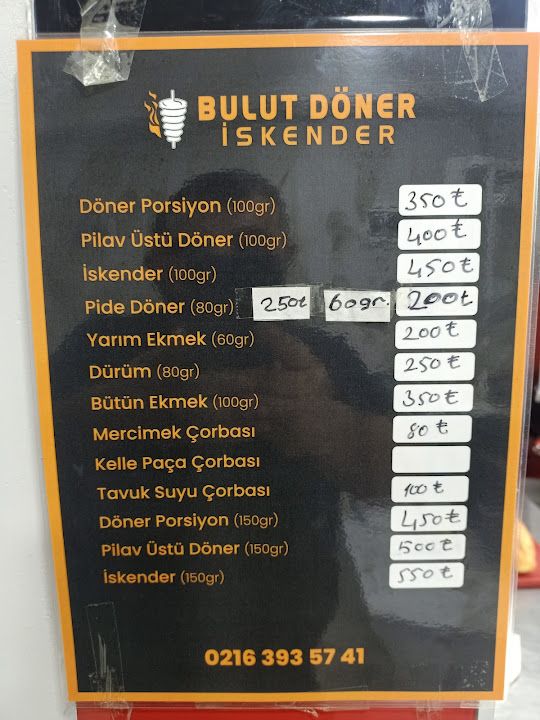 BULUT DÖNER
İSKENDER
Döner Porsiyon (100gr) 350₺
Pilav Üstü Döner (100gr) 400₺
İskender (100gr) 450₺
Pide Döner (80gr) 250₺ 60gr. 200₺
Yarım Ekmek (60gr) 200₺
Dürüm (80gr) 250₺
Bütün Ekmek (100gr) 350₺
Mercimek Çorbası 80₺
Kelle Paça Çorbası
Tavuk Suyu Çorbası 100₺
Döner Porsiyon (150gr) 450₺
Pilav Üstü Döner (150gr) 500₺
İskender (150gr) 550₺
0216 393 57 41